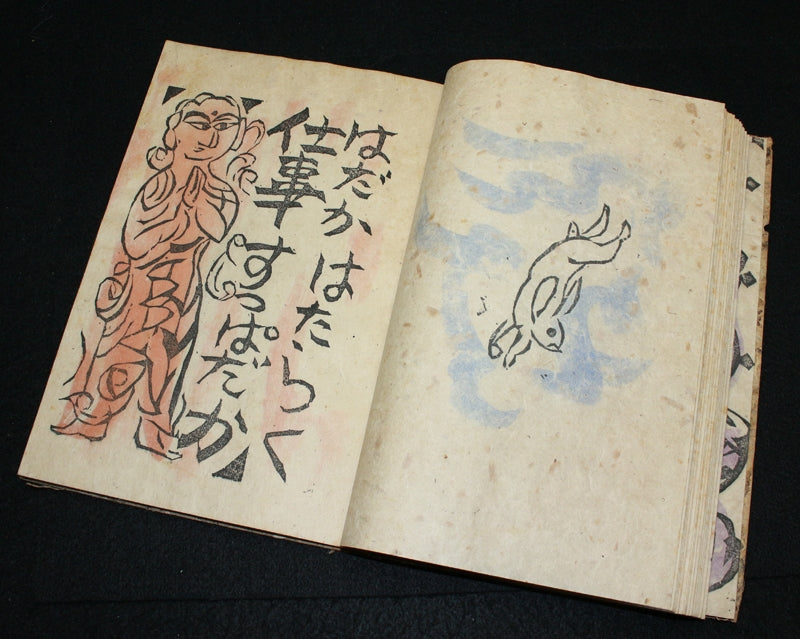 はだかはたらく
仕事すっぱだか